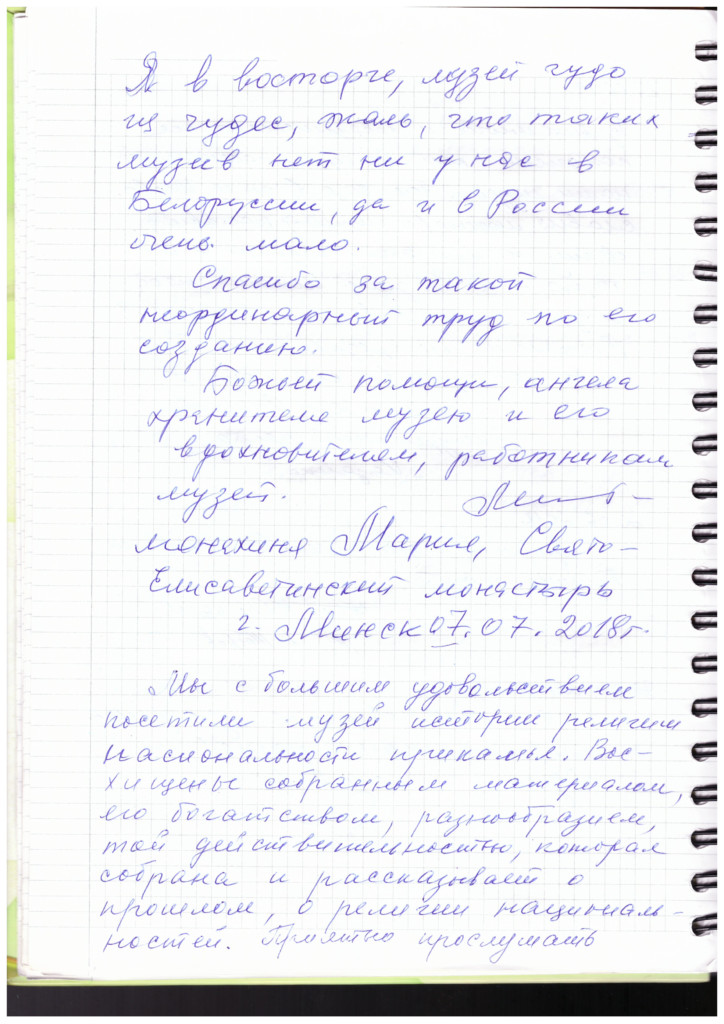 Я в восторге, музей чудо
из чудес, жаль, что таких
музеев нет ни у нас в
Белоруссии, да и в России
очень мало.
Спасибо за такой
неординарный труд по его
созданию.
Божьей помощи, ангела
хранителя музею и его
вдохновителям, работникам
музей.
монахиня Мария, Свято-
Елисаветинский монастырь
г. Минск 07.07.2018г.
Мы с большим удовольствием
посетили музей истории религии
насиональности прикамья. Вос-
хищены собранным материалом,
его богатством, разнообразием,
той действительностью, которая
собрана и рассказывает о
прошлом, о религии националь-
ностей. Приятно прослушать